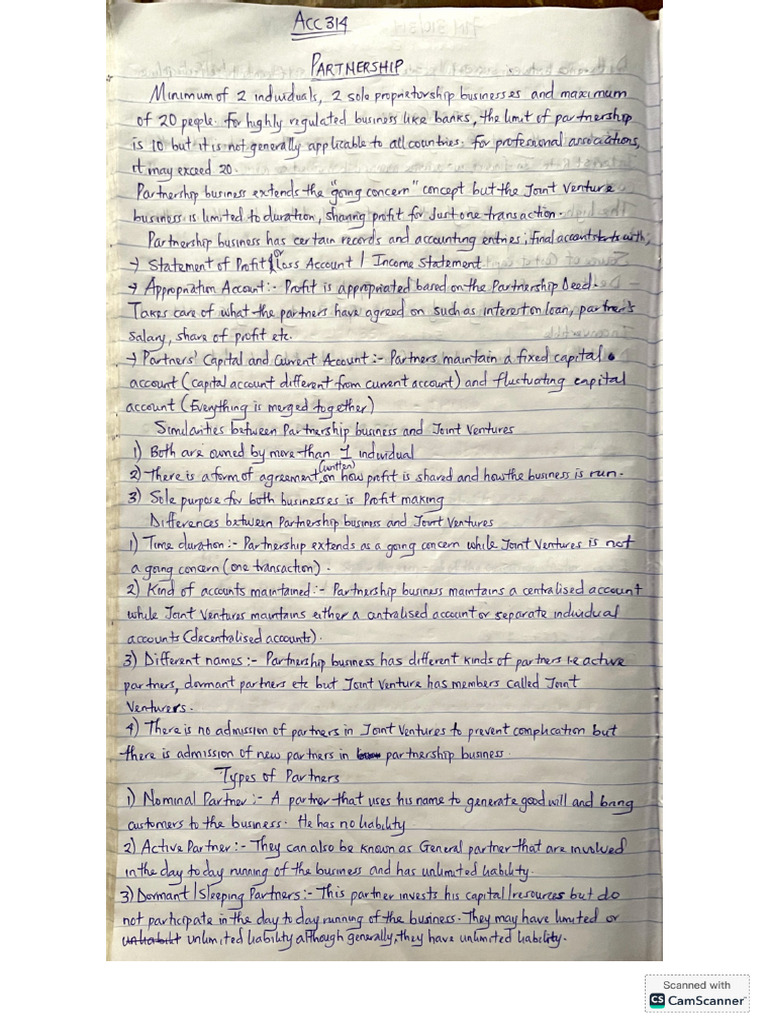 ACC 314
PARTNERSHIP
Minimum of 2 individuals, 2 sole proprietorship businesses and maximum
of 20 people. For highly regulated business like banks, the limit of partnership
is 10 but it is not generally applicable to all countries. For professional associations,
it may exceed 20.
Partnership business extends the "going concern" concept but the Joint Venture
business is limited to duration, sharing profit for Just one transaction.
Partnership business has certain records and accounting entries; final account starts with;
→ Statement of Profit or Loss Account / Income Statement
→ Appropriation Account:- Profit is appropriated based on the Partnership Deed.
Takes care of what the partners have agreed on such as interest on loan, partner's
salary, share of profit etc.
→ Partners' Capital and Current Account:- Partners maintain a fixed capital
account (capital account different from current account) and fluctuating capital
account (Everything is merged together)
Similarities between Partnership business and Joint Ventures
1) Both are owned by more than 1 individual
2) There is a form of agreement (written) on how profit is shared and how the business is run.
3) Sole purpose for both businesses is Profit making
Differences between Partnership business and Joint Ventures
1) Time duration:- Partnership extends as a going concern while Joint Ventures is not
a going concern (one transaction).
2) Kind of accounts maintained:- Partnership business maintains a centralised account
while Joint Ventures maintains either a centralised account or separate individual
accounts (decentralised accounts).
3) Different names:- Partnership business has different kinds of partners i.e active
partners, dormant partners etc but Joint Venture has members called Joint
Venturers.
4) There is no admission of partners in Joint Ventures to prevent complication but
there is admission of new partners in partnership business.
Types of Partners
1) Nominal Partner:- A partner that uses his name to generate goodwill and bring
customers to the business. He has no liability
2) Active Partner:- They can also be known as General partner that are involved
in the day to day running of the business and has unlimited liability.
3) Dormant / Sleeping Partners:- This partner invests his capital/resources but do
not participate in the day to day running of the business. They may have limited or
unlimited liability although generally, they have unlimited liability.
Scanned with
CS CamScanner